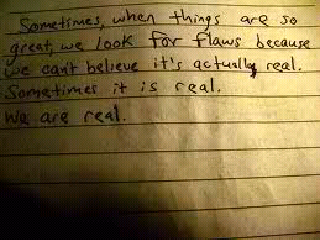 Sometimes, when things are so
great, we look for flaws because
we can't believe it's actually real.
Sometimes it is real.
We are real.